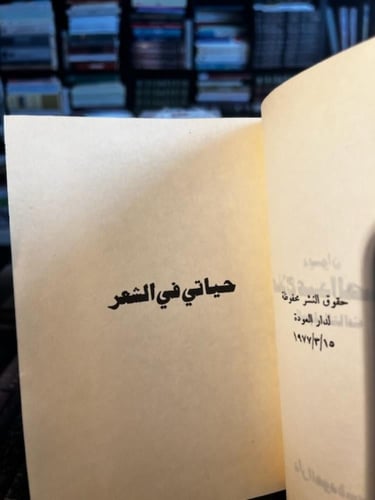 حقوق النشر محفوظة
لدار العودة
١٩٧٧/٣/١٥
حياتي في الشعر